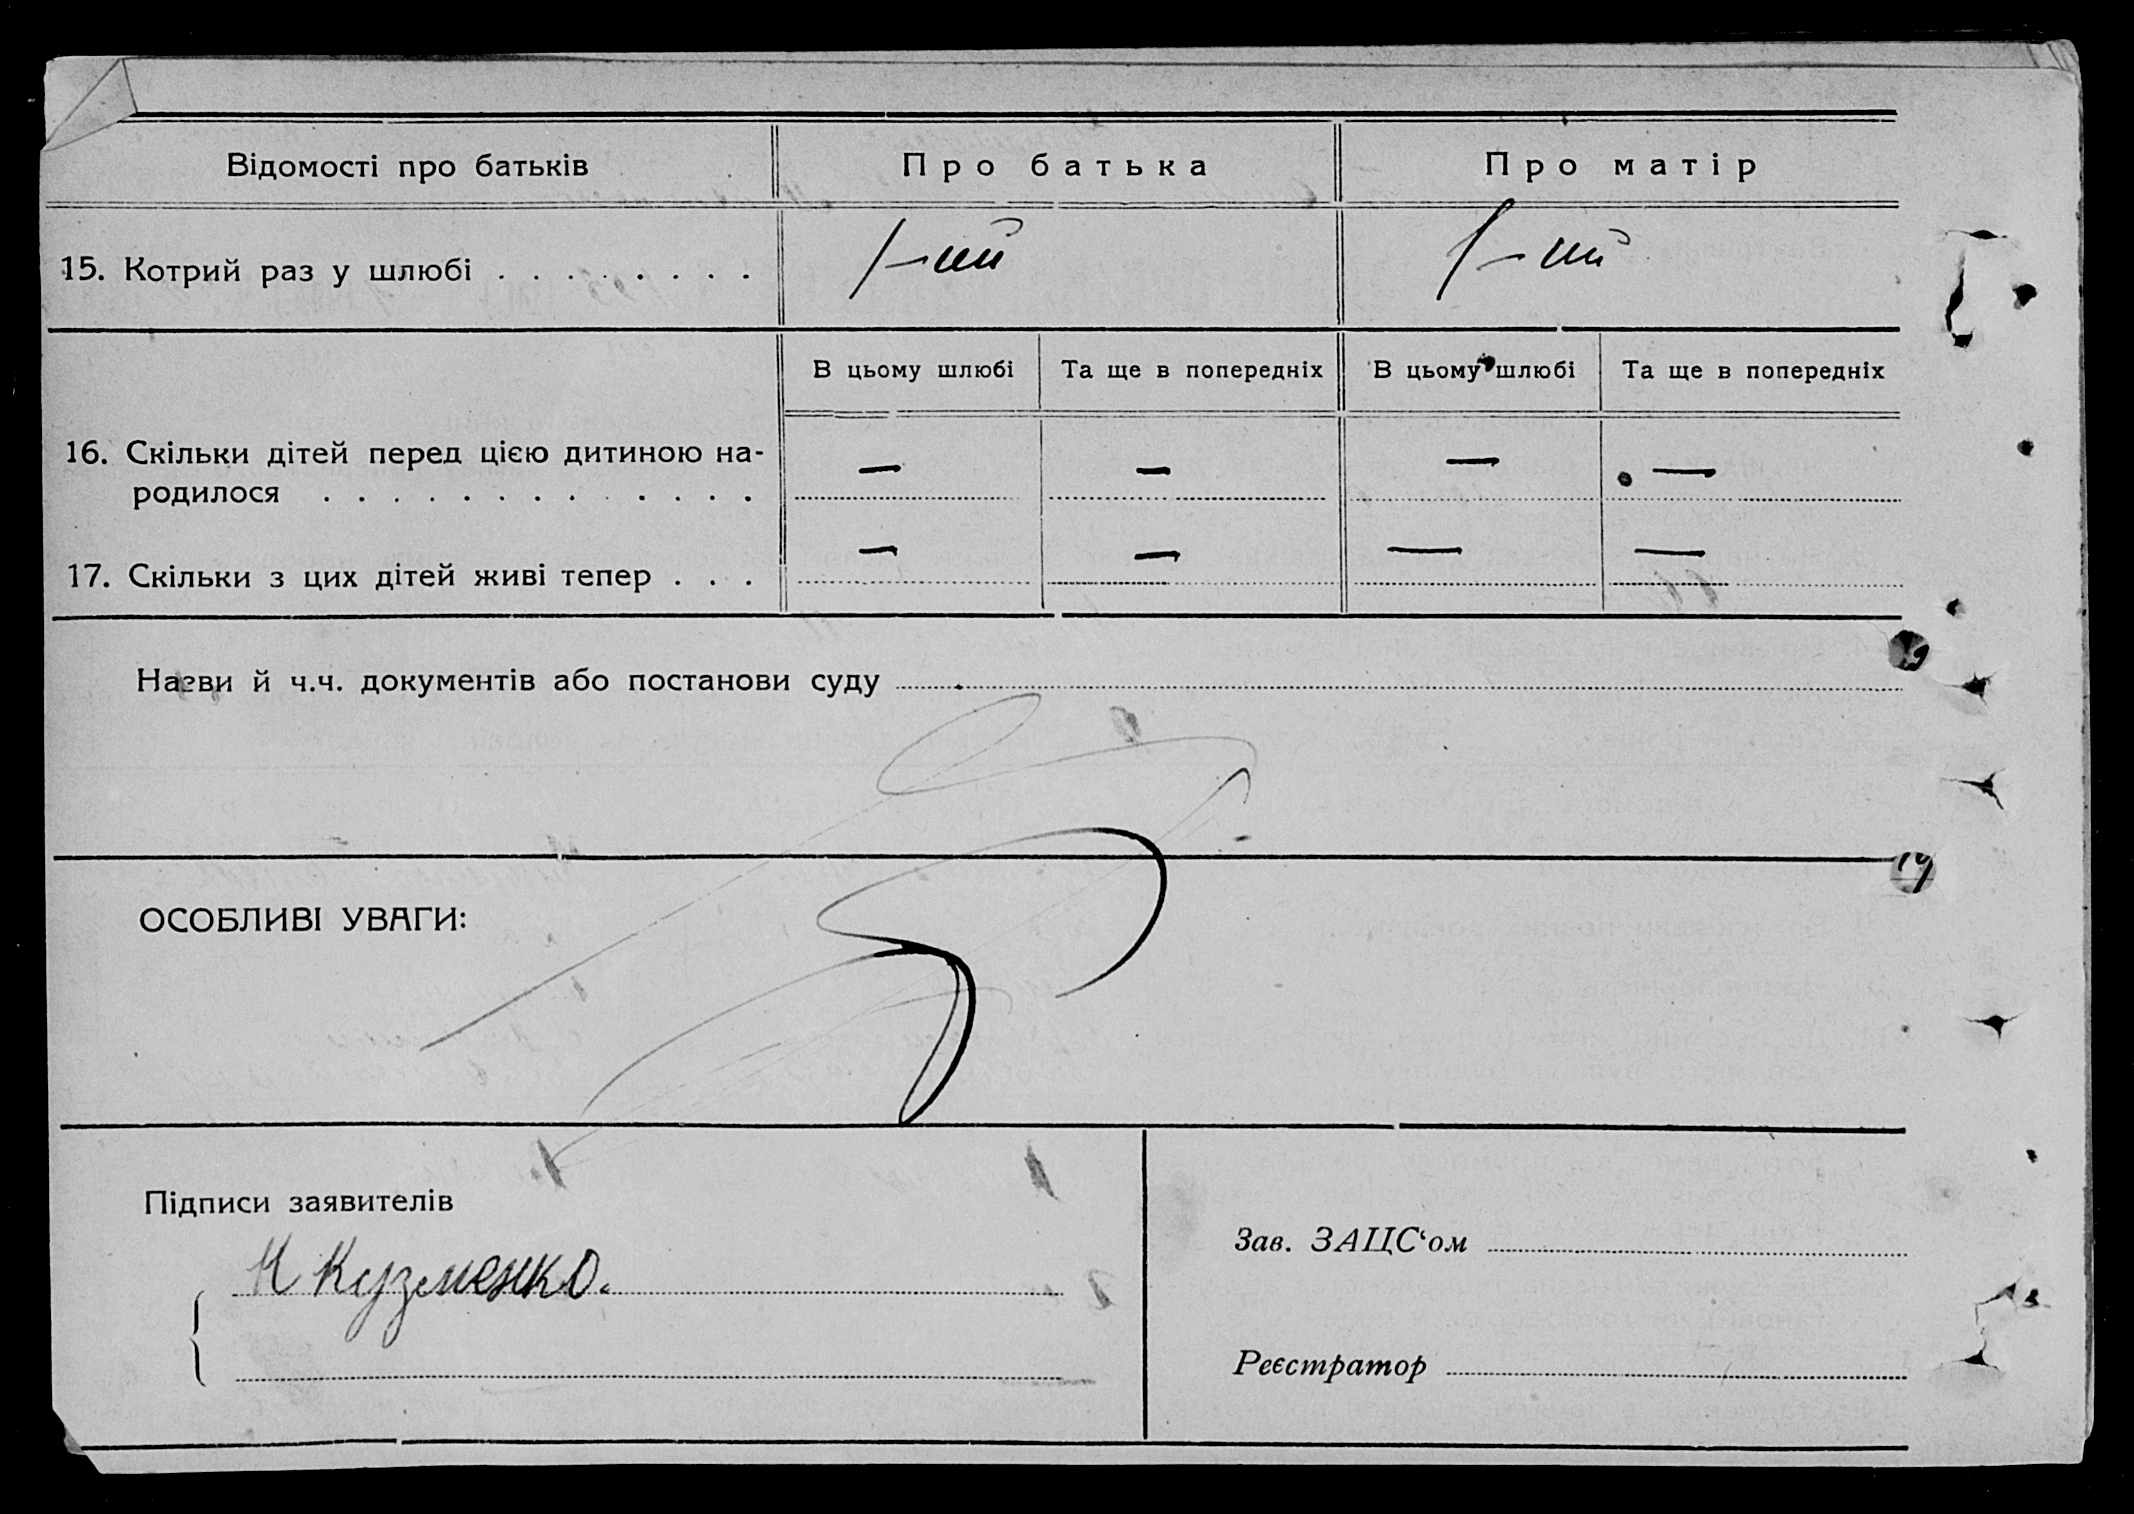 Відомості про батьків Про батька Про матір
15. Котрий раз у шлюбі . . . . . . . . 1-ий 1-ий
В цьому шлюбі Та ще в попередніх В цьому шлюбі Та ще в попередніх
16. Скільки дітей перед цією дитиною на- — — — —
родилося . . . . . . . . . . . . .
17. Скільки з цих дітей живі тепер . . . — — — —
Назви й ч.ч. документів або постанови суду
ОСОБЛИВІ УВАГИ:
Підписи заявителів
Н Кузменко.
Зав. ЗАЦС‘ом
Реєстратор